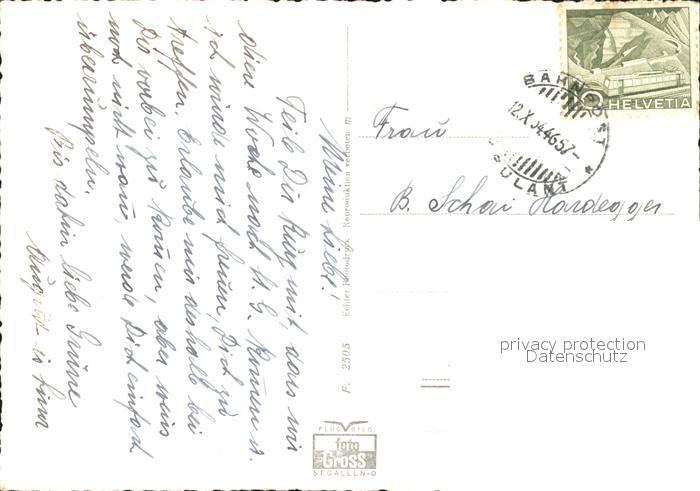 Meine Liebe!
Teile Dir kurz mit, dass wir
diese Woche nach St. G. kommen u.
ich würde mich freuen, Dich zu
treffen. Erlaube mir deshalb bei
Dir vorbei zu kommen, aber weiss
noch nicht wann, werde Dich einfach
überrumpeln.
Bis dahin liebe Grüsse
BAHNPOST
12.X.54
AMBULANT
10 HELVETIA
Frau
B. Schai Hardegger
Echter Photodruck Reproduktion verboten
F. 2505
FLUGBILD
foto
Gross
ST. GALLEN-O
privacy protection
Datenschutz